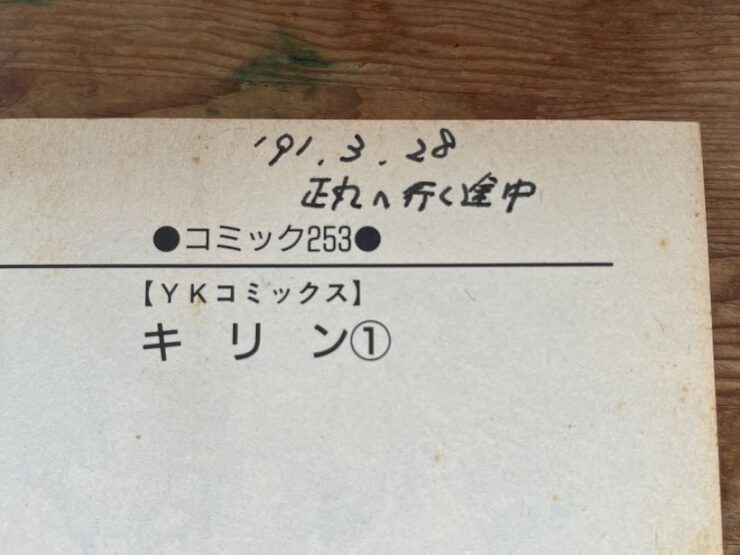 '91.3.28
正丸へ行く途中
●コミック253●
【YKコミックス】
キリン①